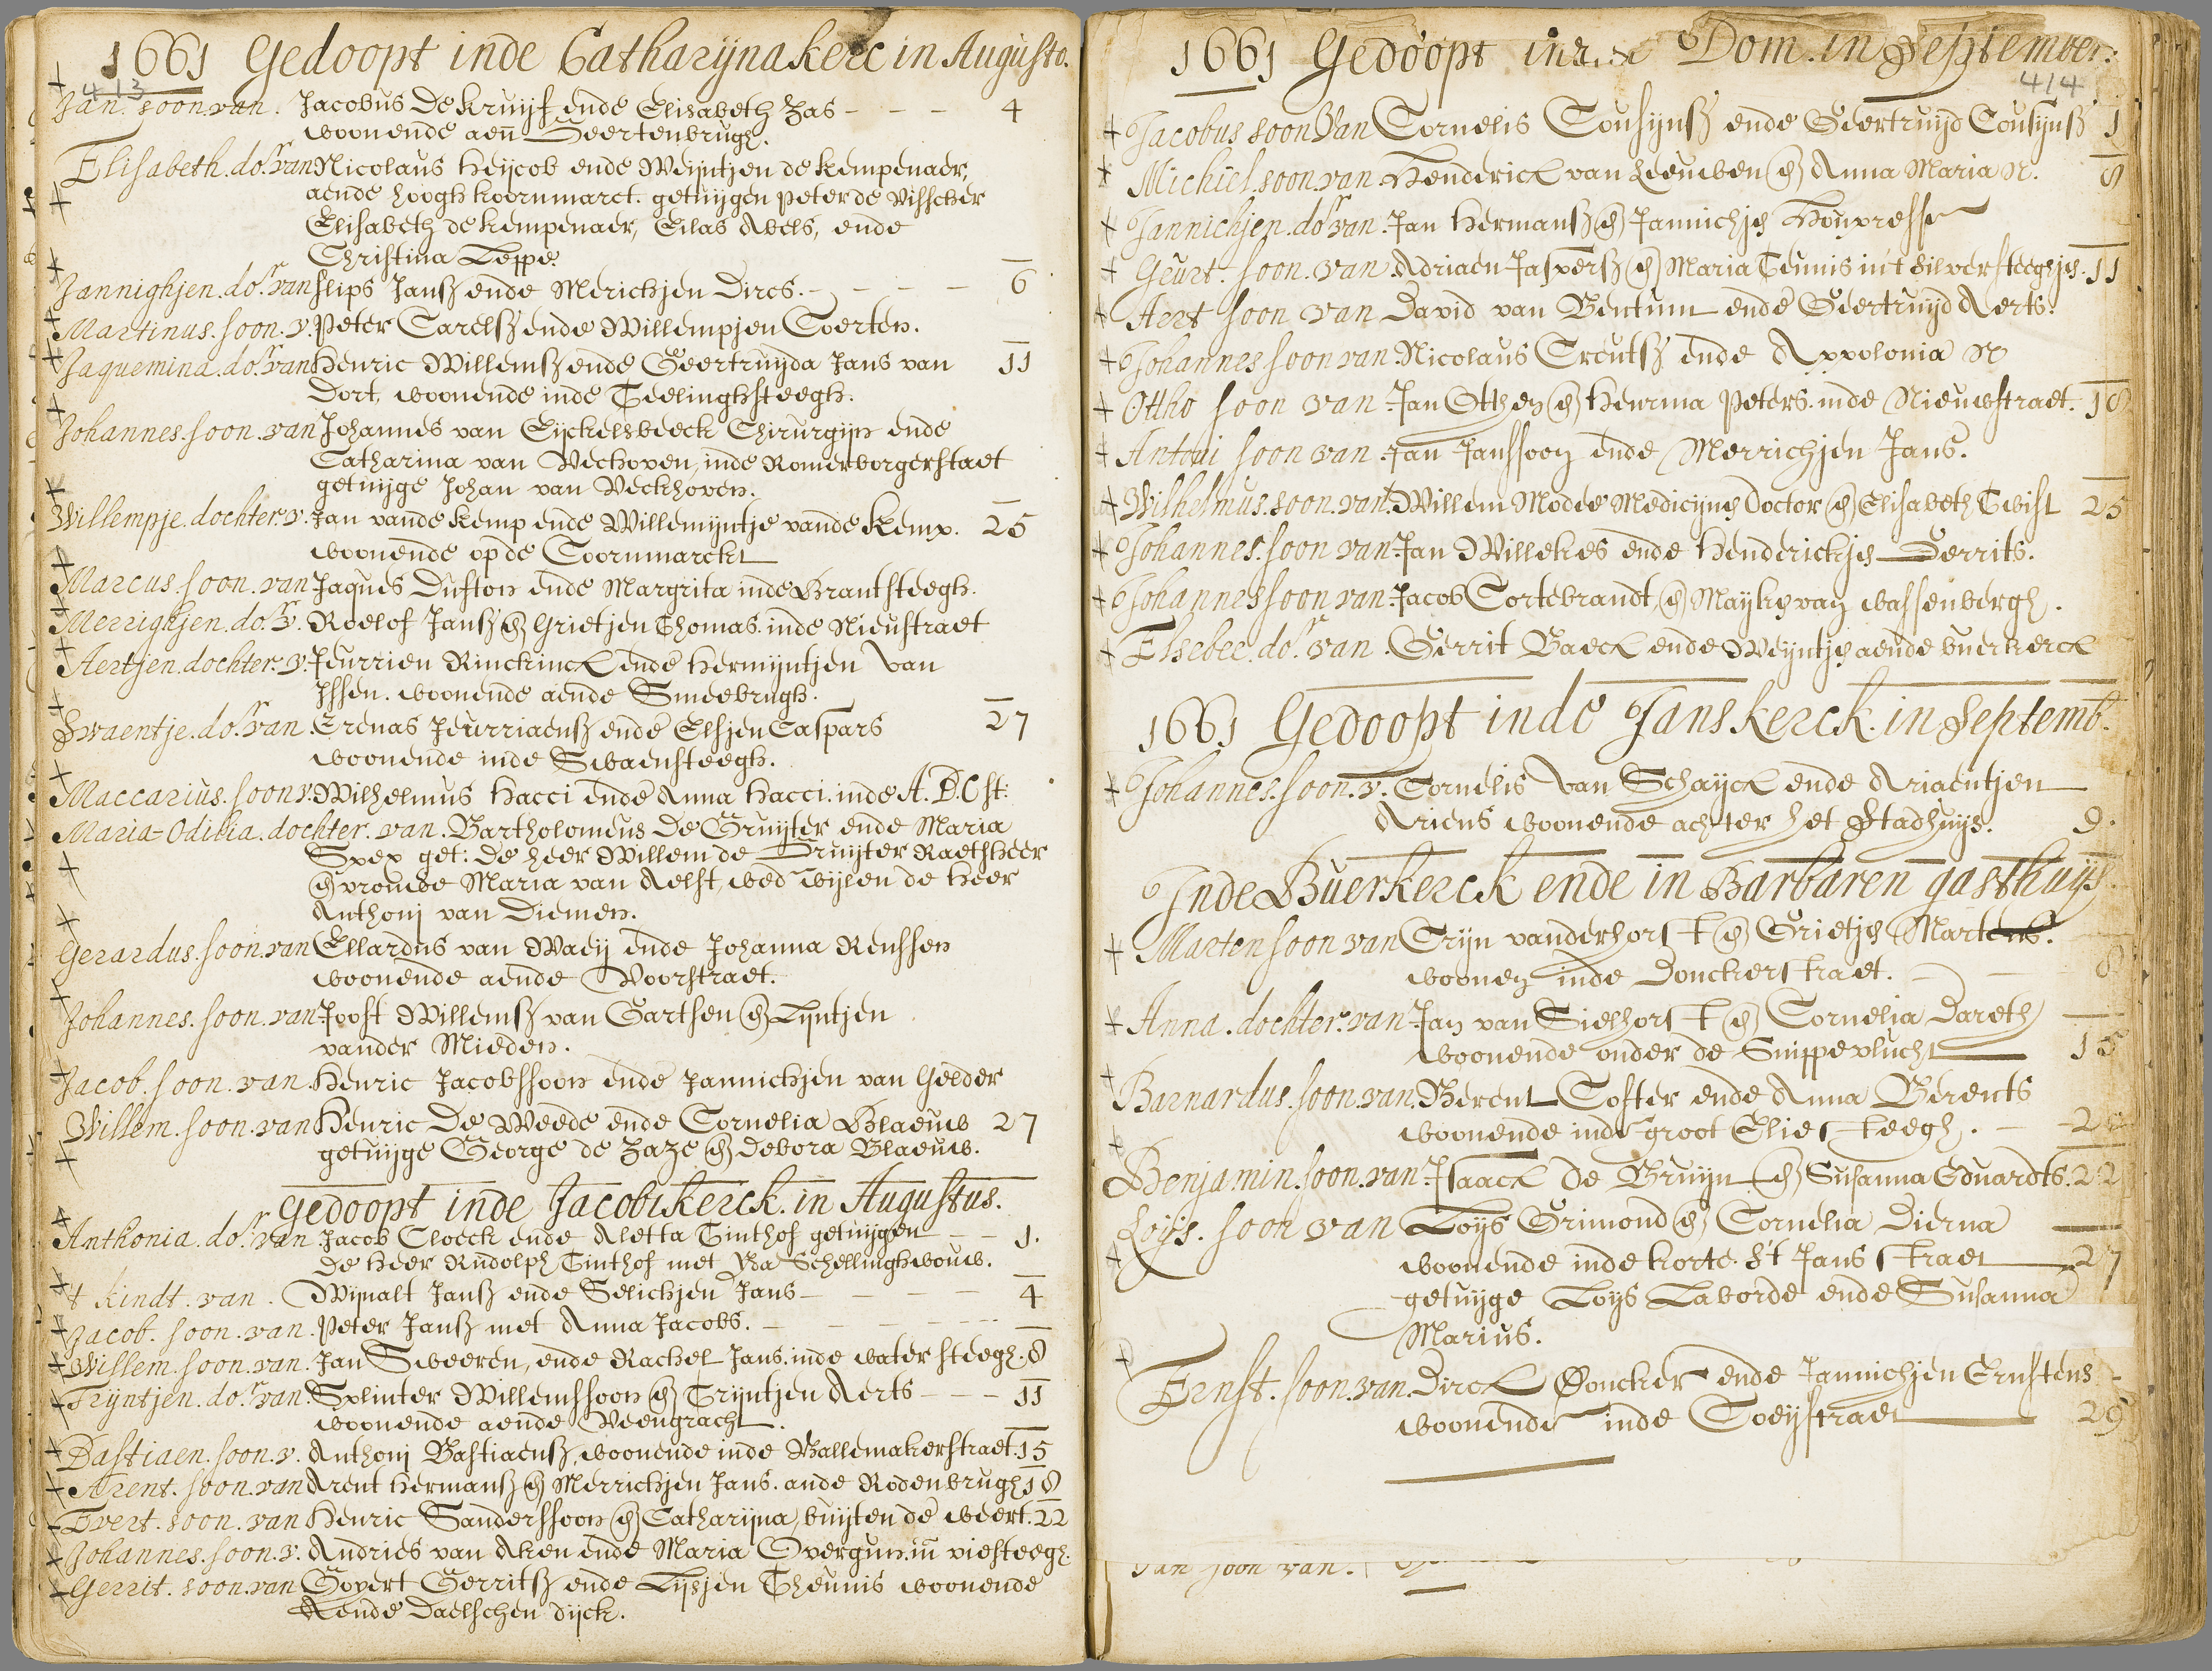 1661 Gedoopt inde Catharijnakerc in Augusto.
413
Jan. soon. van. Jacobus de Kruijf ende Elisabeth Zas - - - 4
woonende aen Geertenbrugh.
Elisabeth. dor. van Nicolaus Heijcob ende Weijntjen de Kempenaer,
aende Hoogh Koornmarct. getuijgen Peter de Visscher
Elisabeth de Kempenaer, Eilas Abels, ende
Christina Leppe.
Jannighjen. dor. van Flips Jansz ende Merichjen Dircs. - - - 6
Martinus. soon. v. Peter Carelsz ende Willempjen Coerten.
Jaquemina. dor. van Henric Willemsz ende Geertruijda Jans van 11
Dort, woonende inde Teelinghsteegh.
Johannes. soon. van Johannes van Eijckelsbeeck Chirurgijn ende
Catharina van Vechoven, inde Romerborgerstaet
getuijge Johan van Veckhoven.
Willempje. dochter. v. Jan vande Kemp ende Willemijntje vande Kemp. 25
woonende op de Coornmarckt
Marcus. soon. van Jaques Dufton ende Margrita inde Brantsteegh.
Merrighjen. dor. v. Roelof Jansz en Grietjen Thomas. inde Nieustraet
Aertjen. dochter. v. Jeurrien Rinckinck ende Hermijntjen van
Issen. woonende aende Smeebrugh.
Swaentje. dor. van Erenas Jeurriaensz ende Elsjen Caspars 27
woonende inde Swaensteegh.
Maccarius. soon v. Wilhelmus Hacci ende Anna Hacci. inde A.B.C st:
Maria-Odilia. dochter. van. Bartholomeus de Gruijter ende Maria
Spex get: de heer Willem de Gruijter Raetsheer
en vrouwe Maria van Aelst, wed wijlen de Heer
Anthonj van Diemen.
Gerardus. soon. van Ellardus van Waeij ende Johanna Renssen
woonende aende Voorstraet.
Johannes. soon. van Joost Willemsz van Garthen en Lijntjen
vander Mieden.
Jacob. soon. van Henric Jacobssoon ende Jannichjen van Gelder
Willem. soon. van Henric de Weede ende Cornelia Blaeuw 27
getuijge George de Zaze en Debora Blaeuw.
Gedoopt inde Jacobikerck. in Augustus.
Anthonia. dor. van Jacob Cloeck ende Aletta Tinthof getuijgen - - 1.
De Heer Rudolph Tinthof met Schellinghwouw.
't kindt. van. Wijnalt Jansz ende Selichjen Jans - - - 4
Jacob. soon. van. Peter Jansz met Anna Jacobs. - - -
Willem. soon. van. Jan Sweeren, ende Rachel Jans. inde watersteegh. 8
Trijntjen. dor. van Splinter Willemssoon en Trijntjen Aerts - - - 11
woonende aende Veengracht
Bastiaen. soon. v. Anthonj Bastiaensz, woonende inde Ballemakerstraet. 15
Arent. soon. van Arent Hermansz en Merrichjen Jans. ande Rodenbrugh 18
Evert. soon. van Henric Sanderssoon en Catharijna, buijten de weert. 22
Johannes. soon. v. Andries van Aken ende Maria Overgun. in viesteegh.
Gerrit. soon. van Govert Gerritsz ende Lijsjen Theunis woonende
Aende Daelschen dijck.
1661 Gedoopt inde Dom. in September:
414
Jacobus soon Van Cornelis Cousijnsz ende Geertruijd Cousijnsz 1
Michiel. soon. van Henderick van Leeuwen en Anna Maria N. 8
Jannichjen. dor. van. Jan Hermansz en Jannichje
Geurt. soon. van. Adriaen Jaspersz en Maria Teunis in't Silversteeghje. 11
Aert soon van David van Bentum ende Geertruijd Aerts.
Johannes soon van. Nicolaus Ercutsz ende Appolonia N
Ottho soon van Jan Othen en Henrina Peters. inde Nieuwstraet. 18
Antoni soon van Jan Janssoon ende Merrichjen Jans.
Wilhelmus. soon. van. Willem Modee Medicijne Doctor en Elisabeth Twist 25
Johannes. soon van. Jan Willekes ende Henderickje Gerrits.
Johannes soon van. Jacob Cortebrandt, en Mayke van Wassenbergh.
Elsebee. dor. van. Gerrit Baeck ende Weijntje aende buerkerck
1661 Gedoopt inde Janskerck. in Septemb.
Johannes. soon. v. Cornelis Van Schayck ende Ariaentjen
Ariens woonende achter het Stadhuijs. 9.
Inde Buerkerck ende in Barbaren gasthuijs.
Marten soon van Crijn vanderhorst en Grietje Martens.
woonen inde Donckerstraet. - - 8
Anna. dochter. van Jan van Sielhorst en Cornelia Dareth
woonende onder de Snippevlucht 15
Barnardus. soon. van. Berent Coster ende Anna Berents
woonende inde groot Eliesteegh. -
Benjamin. soon. van. Isaack de Bruijn en Susanna Eduardts. 22
Loijs. soon van Loijs Grimond en Cornelia Dierna
woonende inde korte. S't Jans straet 27
getuijge Loijs Laborde ende Susanna
Marius.
Ernst. soon. van. Dirck Doncker ende Jannichjen Ernstens
woonende inde Coeijstraet 29
Jan soon van.